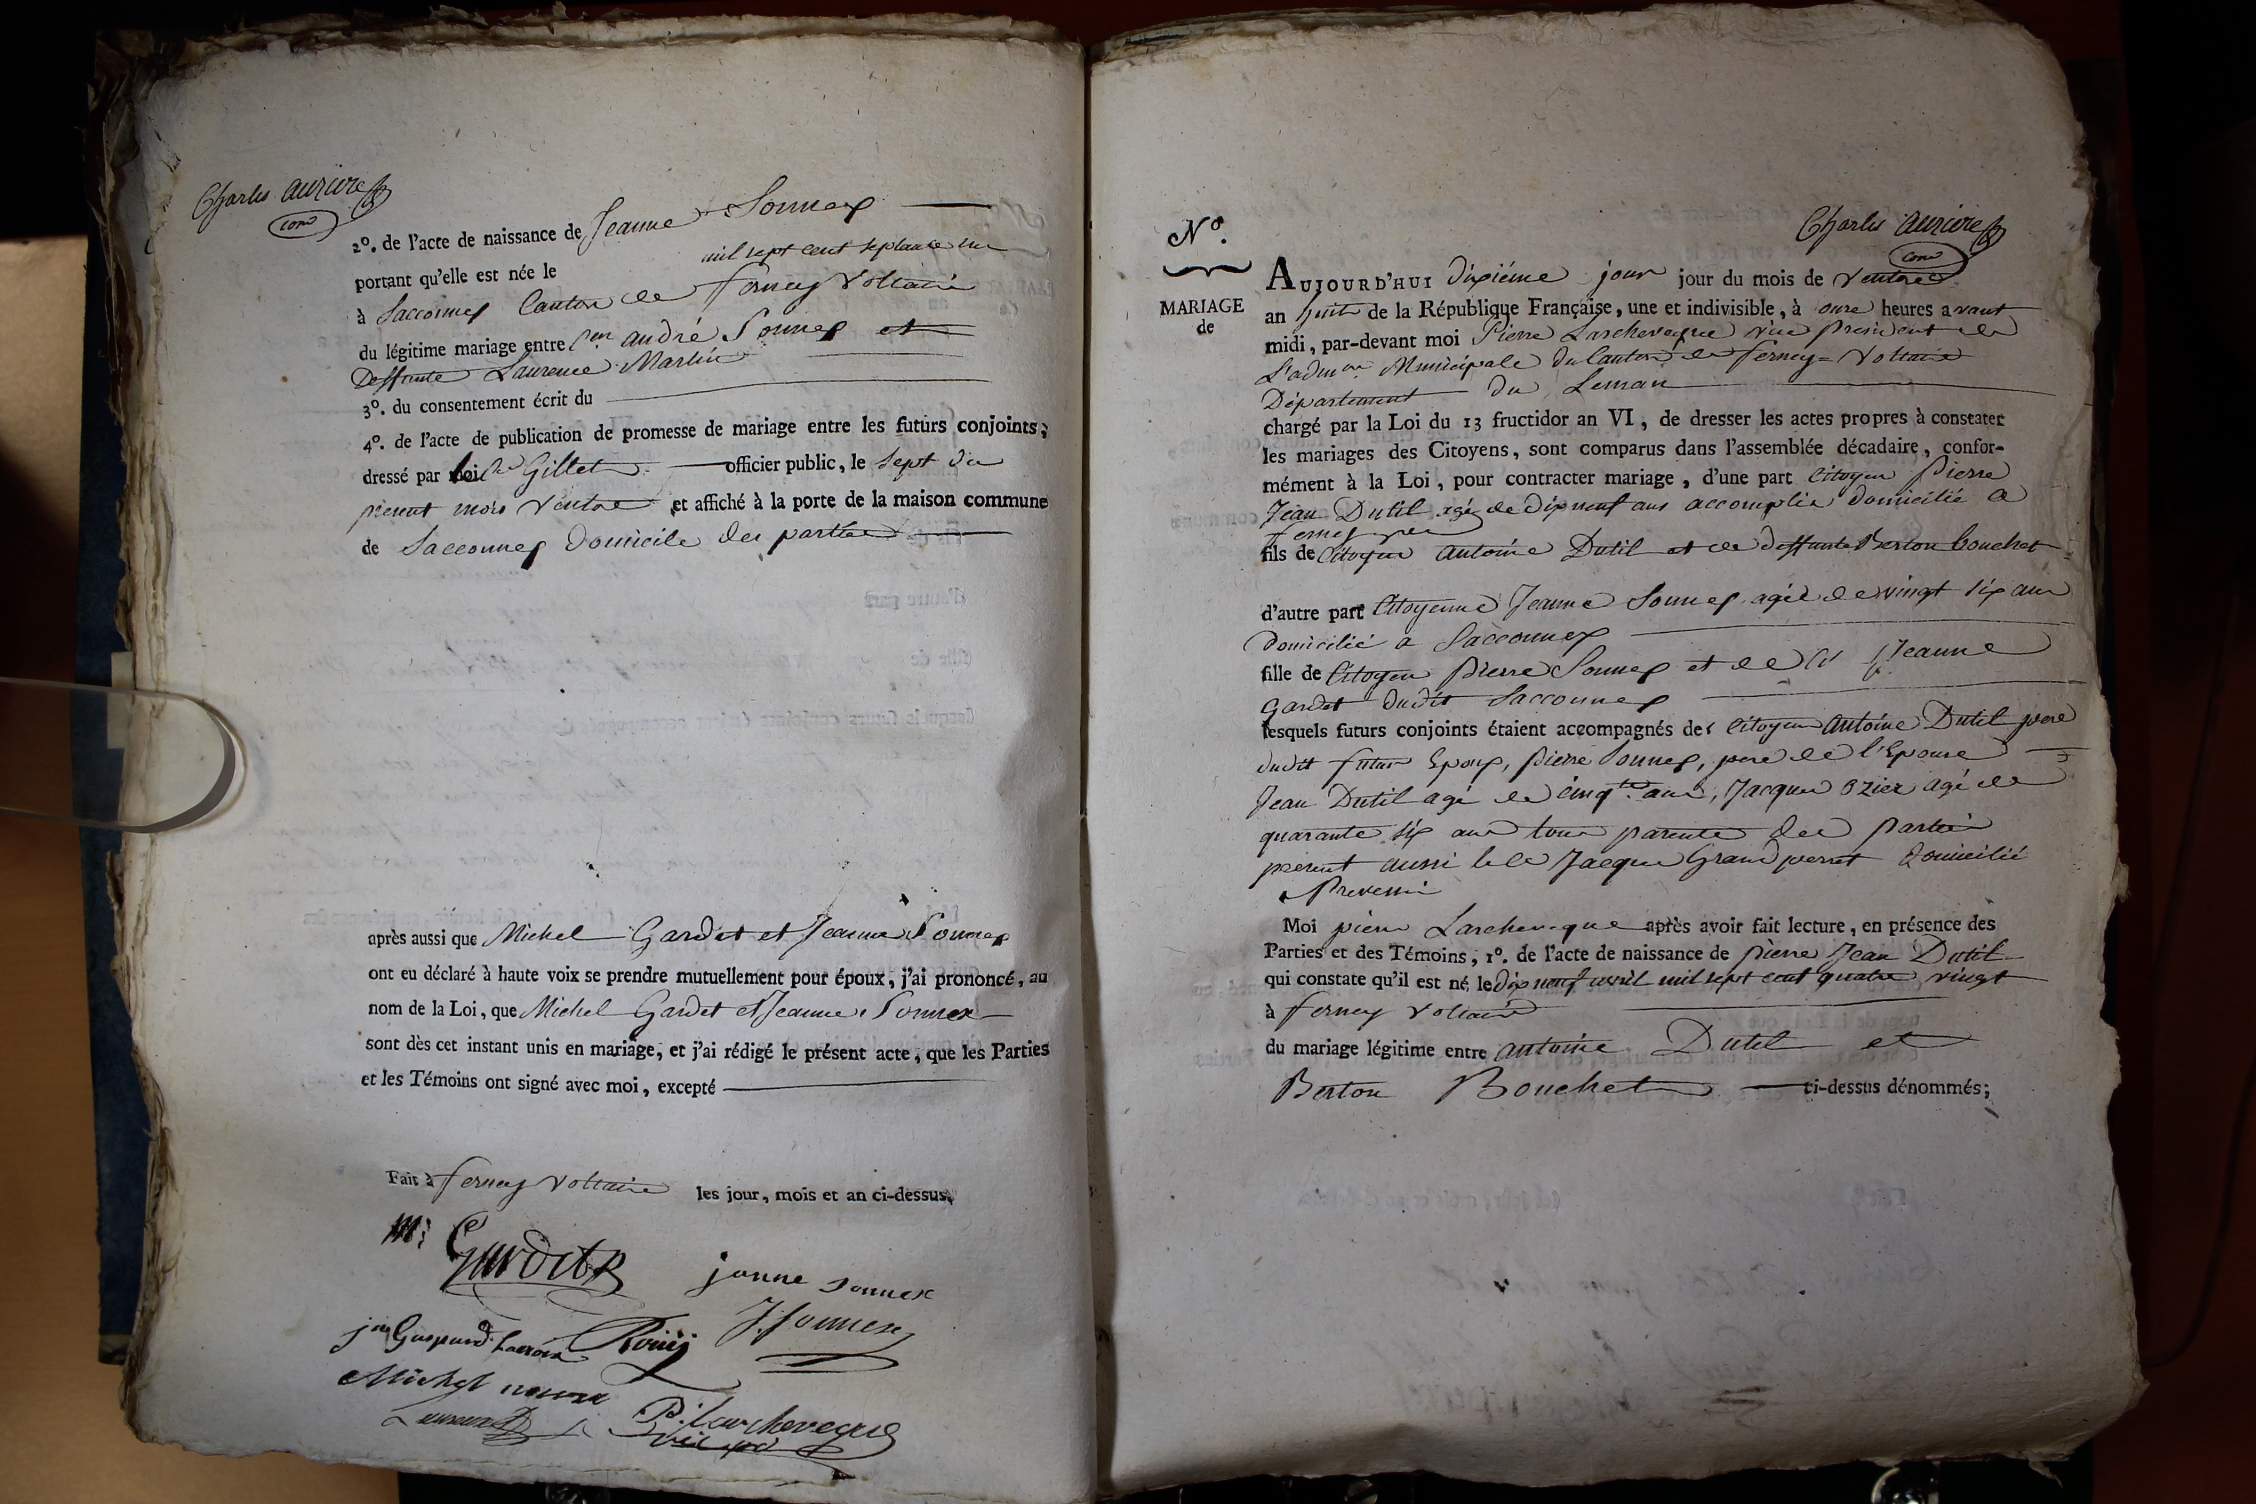 Charles aurivre
2º. de l'acte de naissance de Jeanne Sonnex
portant qu'elle est née le mil sept cent septante un
à Sacconnex Canton de ferney Voltaire
du légitime mariage entre Cen andré Sonnex et
Deffunte Laurence Martin
3º. du consentement écrit du
4º. de l'acte de publication de promesse de mariage entre les futurs conjoints;
dressé par Gillet officier public, le sept du
présent mois Ventose et affiché à la porte de la maison commune
de Sacconnex Domicile des parties
après aussi que Michel Gardet et Jeanne Sonnex
ont eu déclaré à haute voix se prendre mutuellement pour époux, j'ai prononcé, au
nom de la Loi, que Michel Gardet et Jeanne Sonnex
sont dès cet instant unis en mariage, et j'ai rédigé le présent acte, que les Parties
et les Témoins ont signé avec moi, excepté
Fait à ferney Voltaire les jour, mois et an ci-dessus.
mi Gardet
janne sonnex
jn Gaspard Lacroix Rouij J. Sonnex
Michel
P. Larcheveque
vice pdt
Nº.
Charles aurivre
MARIAGE
de
AUJOURD'HUI dixième jour jour du mois de Ventose
an huit de la République Française, une et indivisible, à onze heures avant
midi, par-devant moi Pierre Larcheveque vice president de
L'admon Municipale du Canton de ferney=Voltaire
Département du Leman
chargé par la Loi du 13 fructidor an VI, de dresser les actes propres à constater
les mariages des Citoyens, sont comparus dans l'assemblée décadaire, confor-
mément à la Loi, pour contracter mariage, d'une part Citoyen Pierre
Jean Dutil agé de dix neuf ans accomplis domicilié a
ferney
fils de Citoyen antoine Dutil et de deffunte Berton bouchet
d'autre part Citoyenne Jeanne Sonnex agée de vingt six ans
domicilié a Sacconnex
fille de Citoyen pierre Sonnex et de Jeanne
Gardet dudit Sacconnex
lesquels futurs conjoints étaient accompagnés des Citoyen antoine Dutil pere
dudit futur Epoux, pierre Sonnex, pere de l'Epouse
Jean Dutil agé de cinqte ans, Jacques Ozier agé de
quarante six ans tous parents des parties
présent aussi le Ce Jacque Grandperret domicilié
a Prevessin
Moi pierre Larcheveque après avoir fait lecture, en présence des
Parties et des Témoins, 1º. de l'acte de naissance de pierre Jean Dutil
qui constate qu'il est né le dix neuf avril mil sept cent quatre vingt
à ferney Voltaire
du mariage légitime entre antoine Dutil et
Berton Bouchet ci-dessus dénommés;